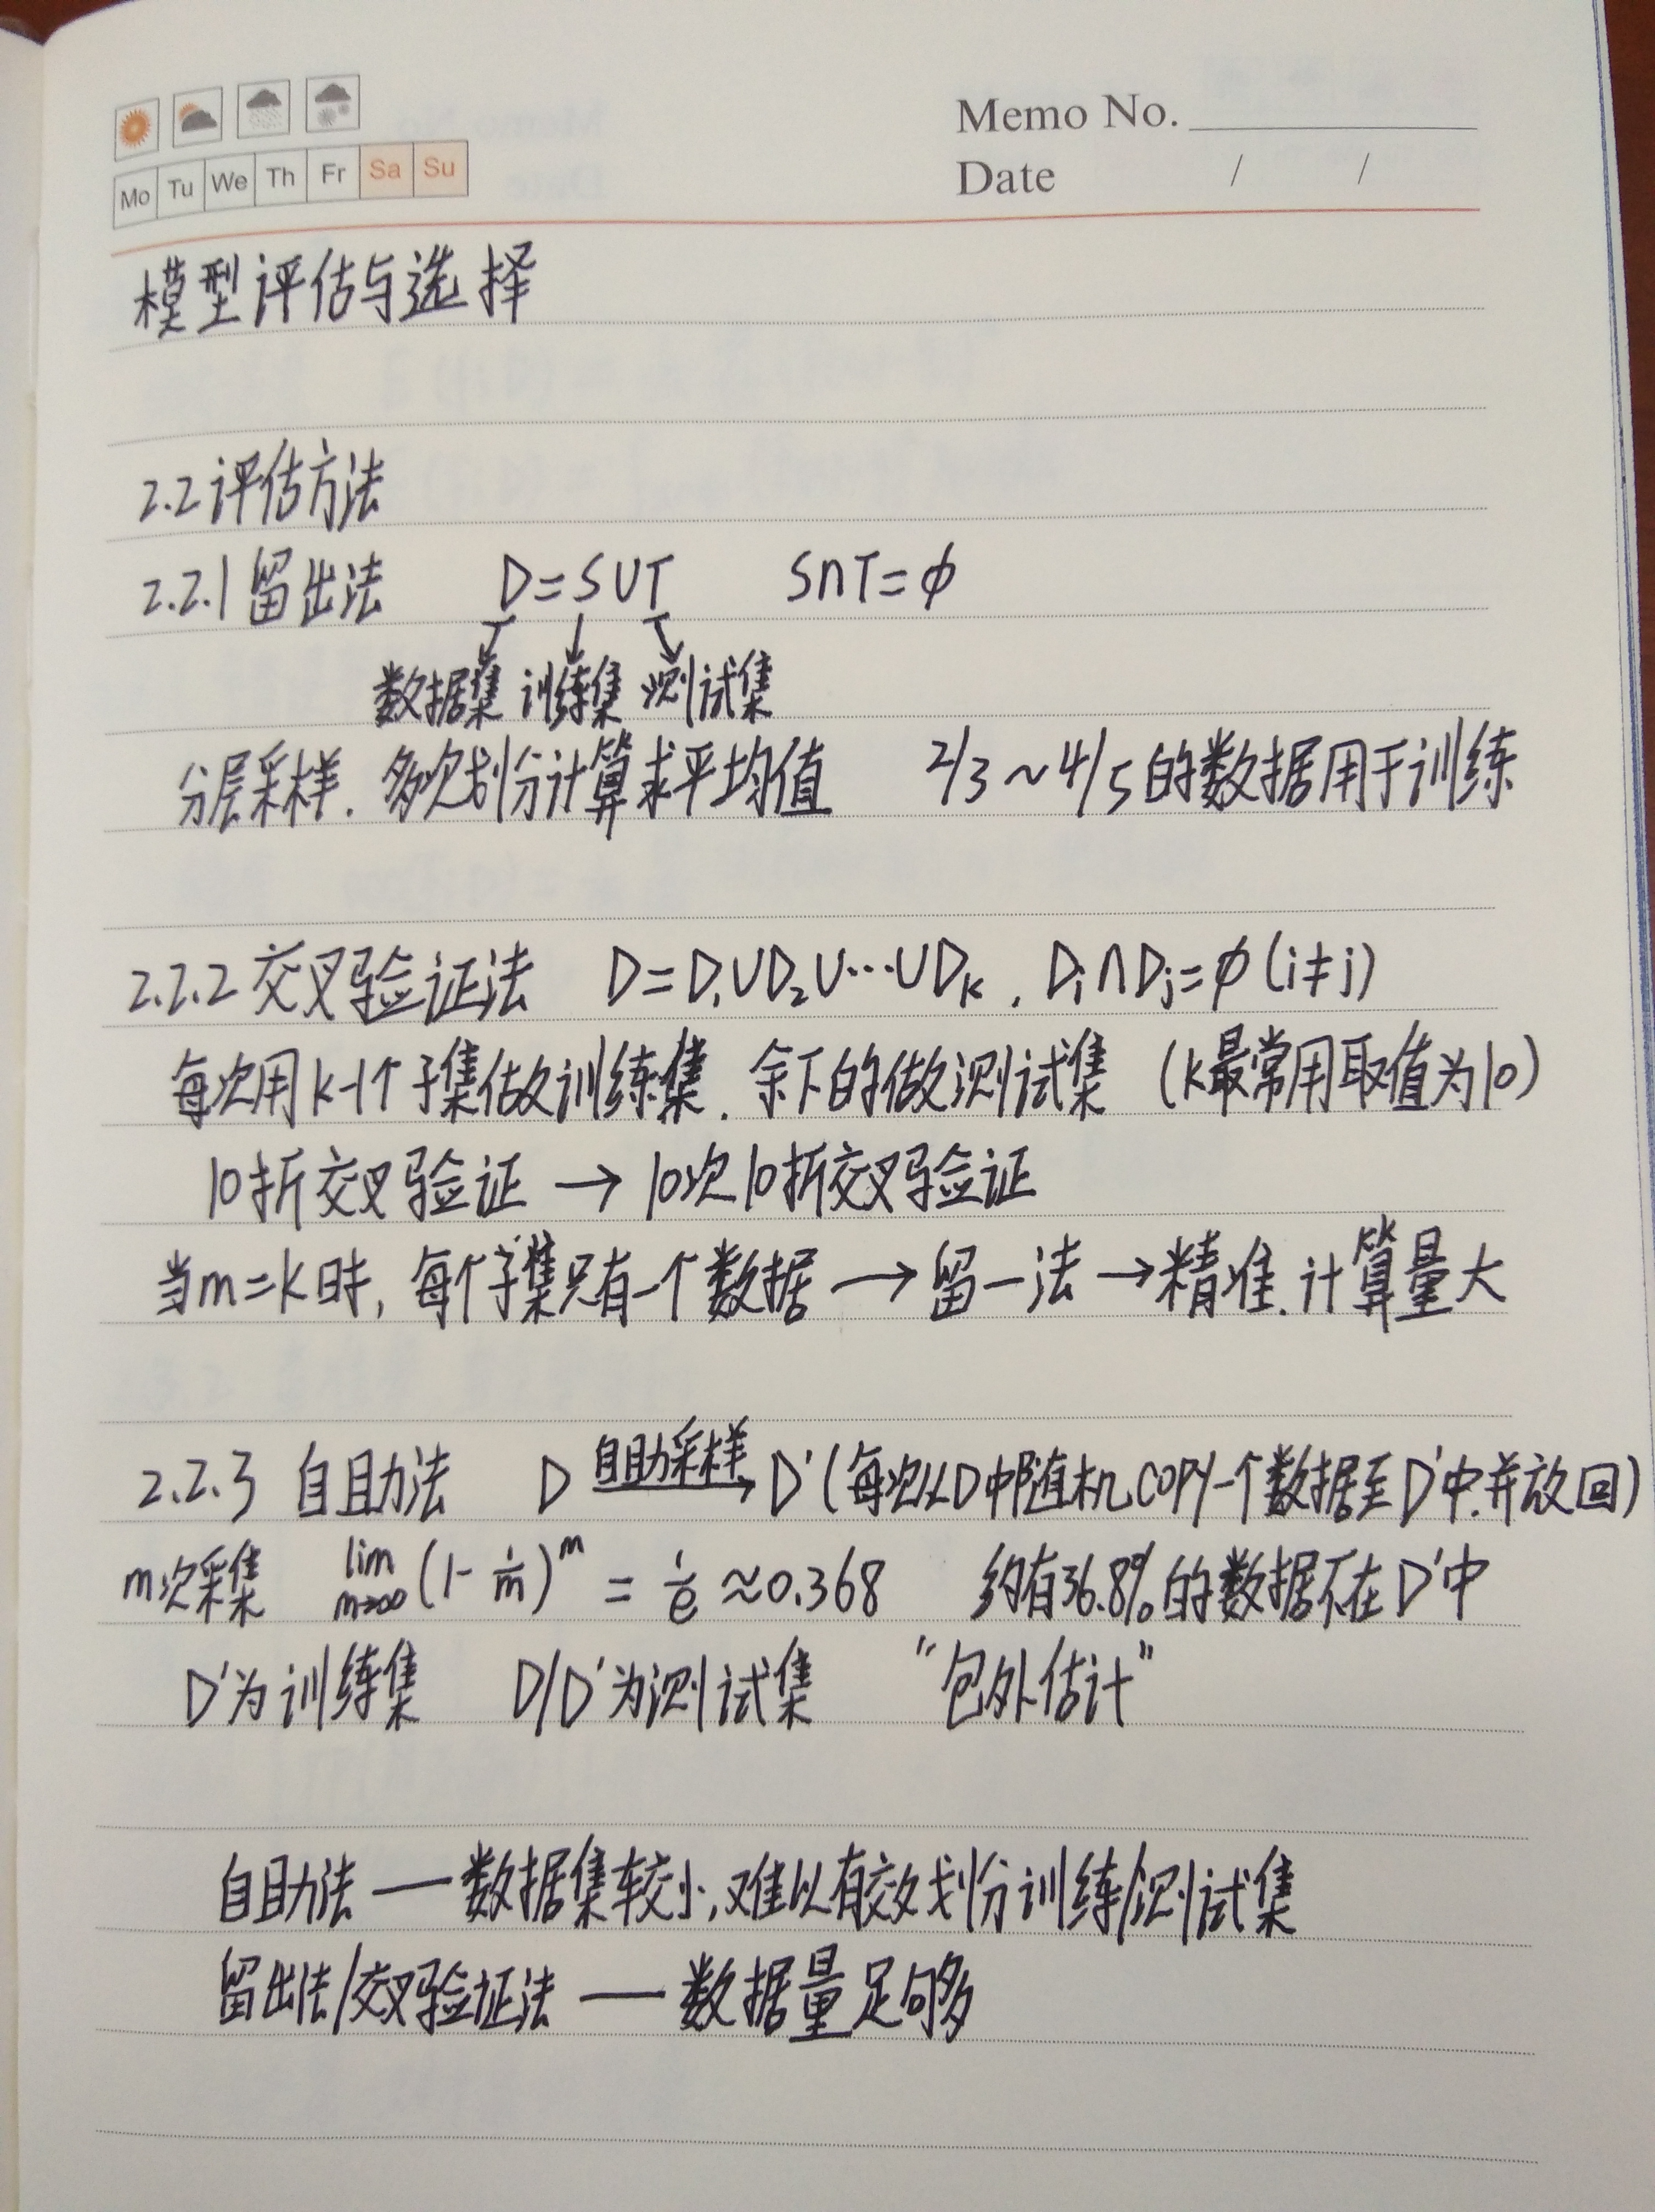 Memo No.
Mo Tu We Th Fr Sa Su
Date / /
模型评估与选择
2.2评估方法
2.2.1留出法 D=S∪T S∩T=∅
数据集 训练集 测试集
分层采样. 多次划分计算求平均值 2/3~4/5的数据用于训练
2.2.2交叉验证法 D=D₁∪D₂∪…∪Dₖ, Dᵢ∩Dⱼ=∅(i≠j)
每次用k-1个子集做训练集, 余下的做测试集 (k最常用取值为10)
10折交叉验证 → 10次10折交叉验证
当m=k时, 每个子集只有一个数据 → 留一法 → 精准. 计算量大
2.2.3 自助法 D 自助采样→ D'(每次从D中随机copy一个数据至D'中.并放回)
m次采集 lim m→∞ (1-1/m)^m = 1/e ≈0.368 约有36.8%的数据不在D'中
D'为训练集 D/D'为测试集 "包外估计"
自助法 — 数据集较小,难以有效划分训练/测试集
留出法/交叉验证法 — 数据量足够多